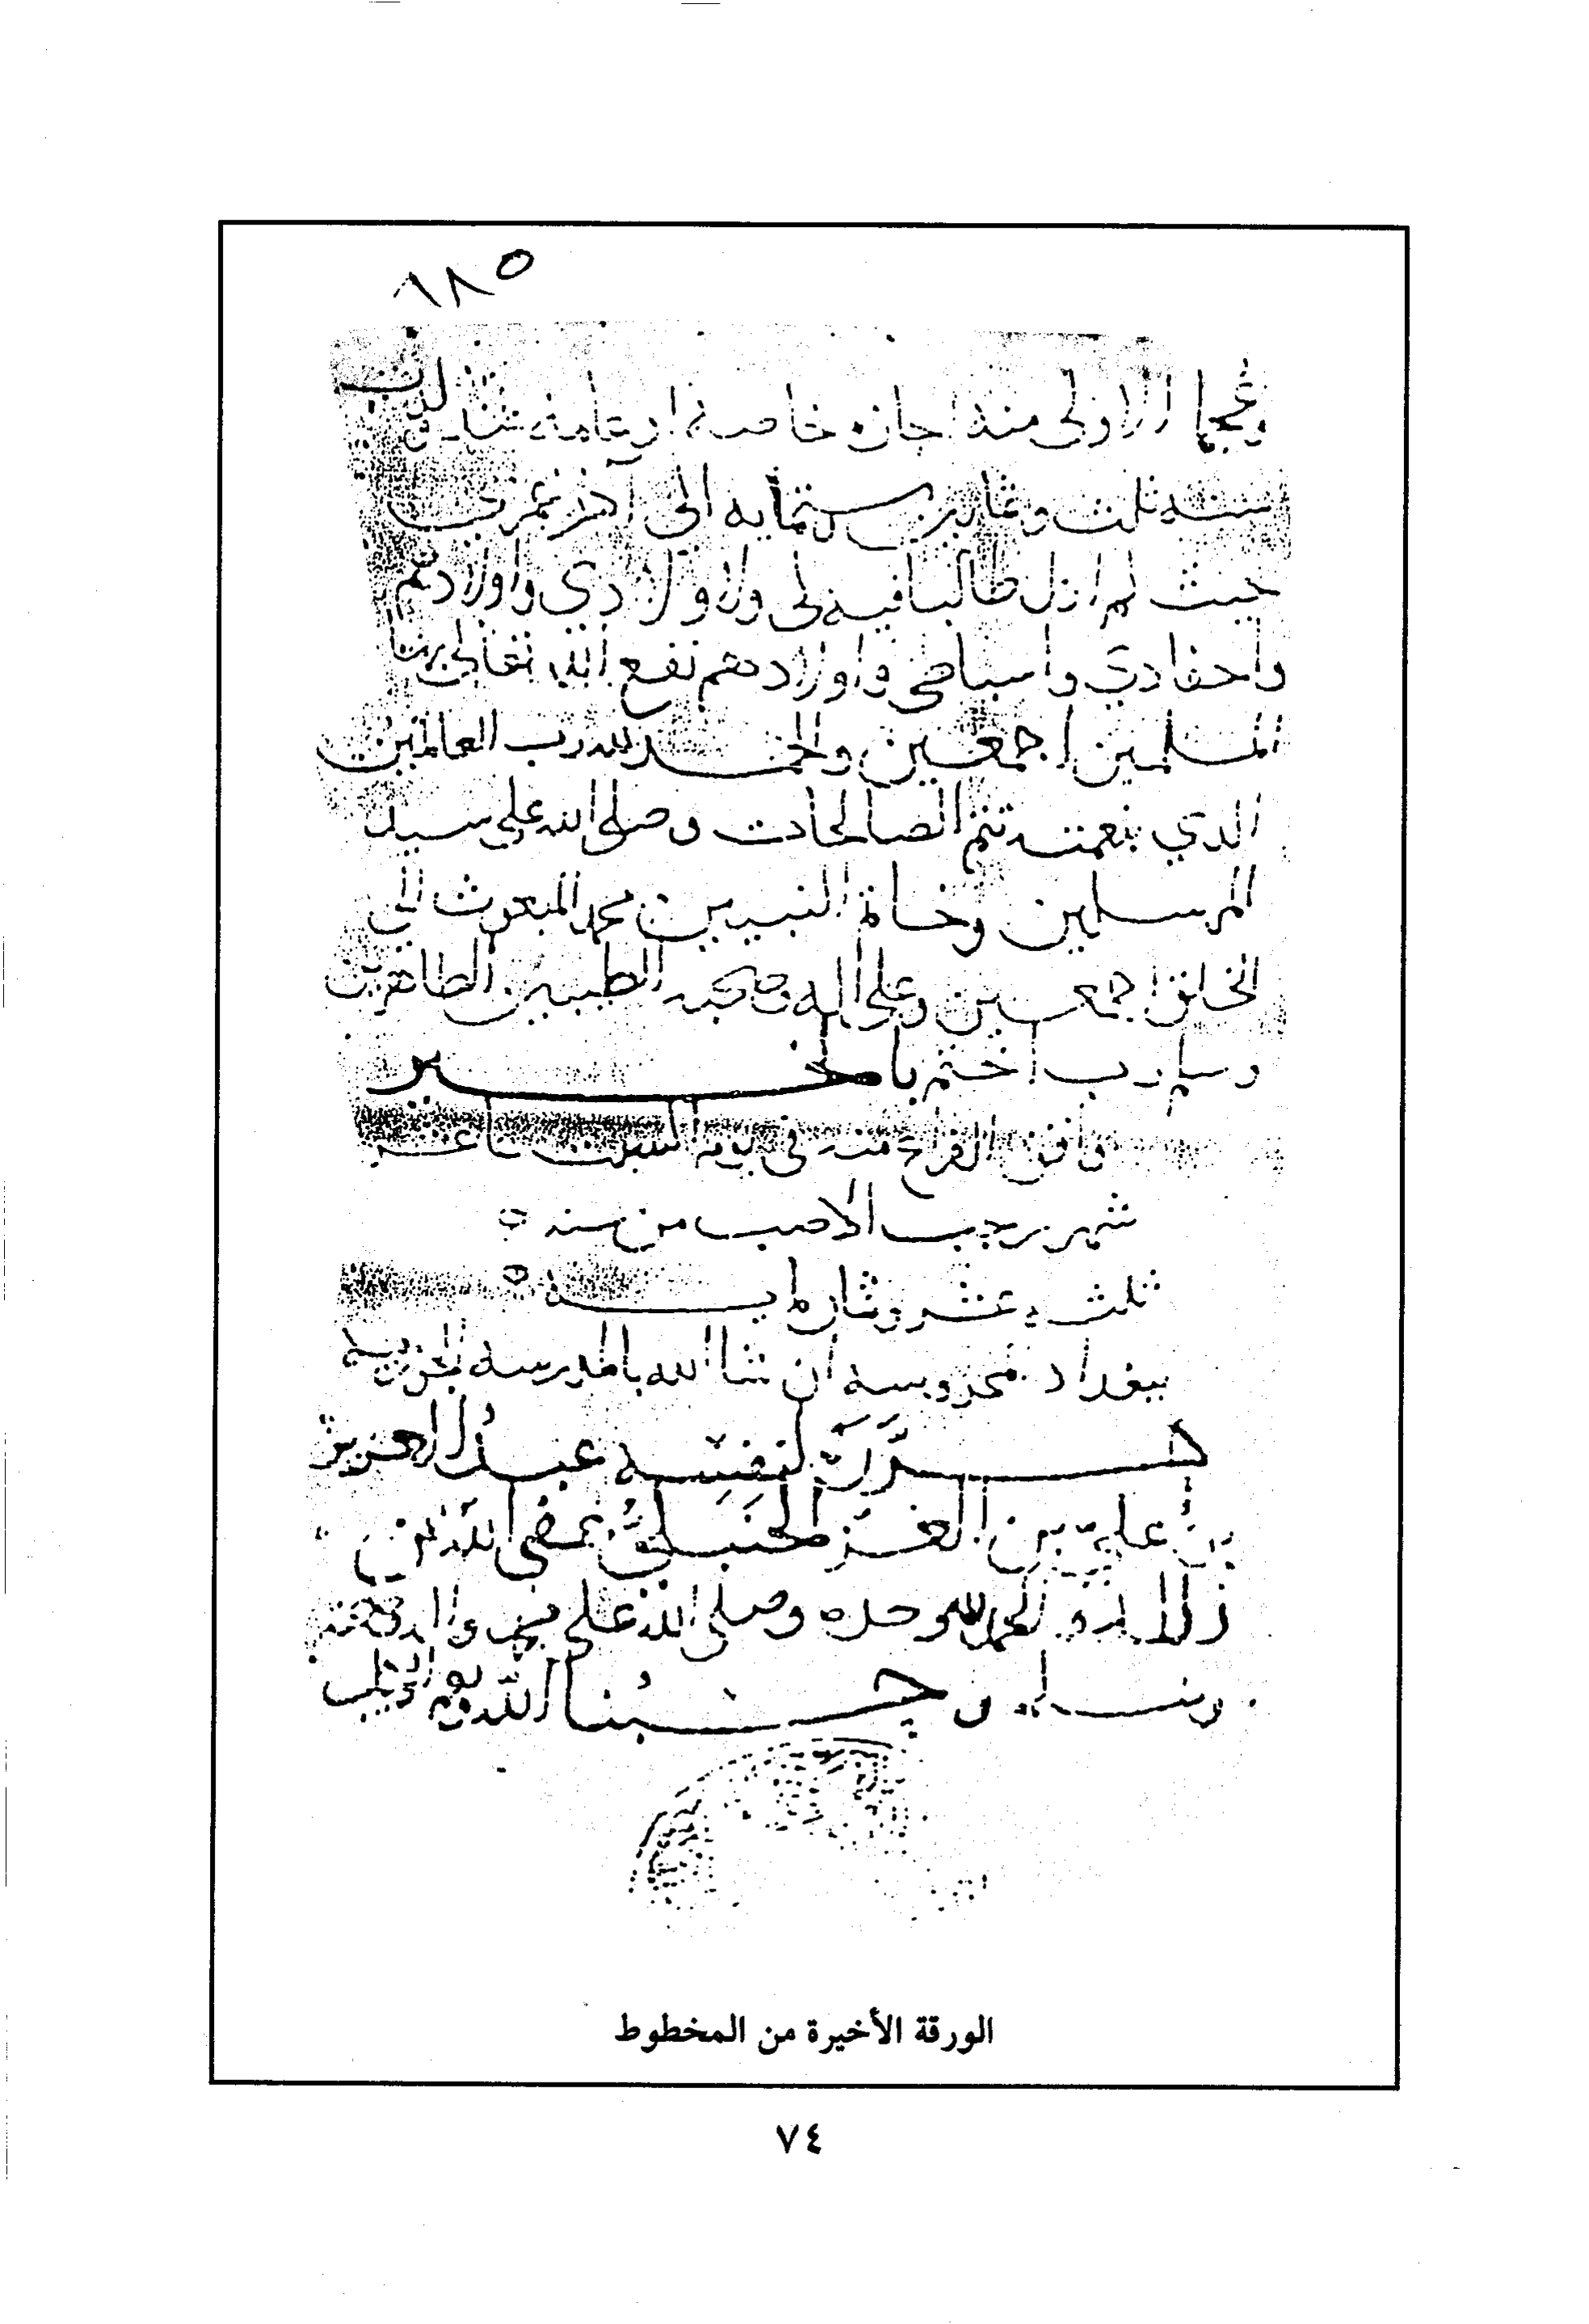 ٦٨٥
الأولى منه اجازه خاصة
سنة ثلث وثمانين وستمايه الى آخر عمري
حيث لم ازل طالبا فيه لي ولاولادي واولادهم
واحفادي واسباطي واولادهم نفع الله تعالى به
المسلمين اجمعين والحمد لله رب العالمين
الدي بنعمته تتم الصالحات وصلى الله على سيد
المرسلين وخاتم النبيين محمد المبعوث الى
الخلق اجمعين وعلى اله وصحبه الطيبين الطاهرين
وسلم رب اختم بالخير
وافق الفراغ منه في يوم السبت
شهر رجب الاصب من سنه
ثلث عشر وثمان مايه
ببغداد محروسه ان شا الله بالمدرسه
لنفسه عبد العزيز
بن علي بن العز الحنبلي
الحمد لله وحده وصلى الله على
وسلم وحسبنا الله ونعم الوكيل
الورقة الأخيرة من المخطوط
٧٤